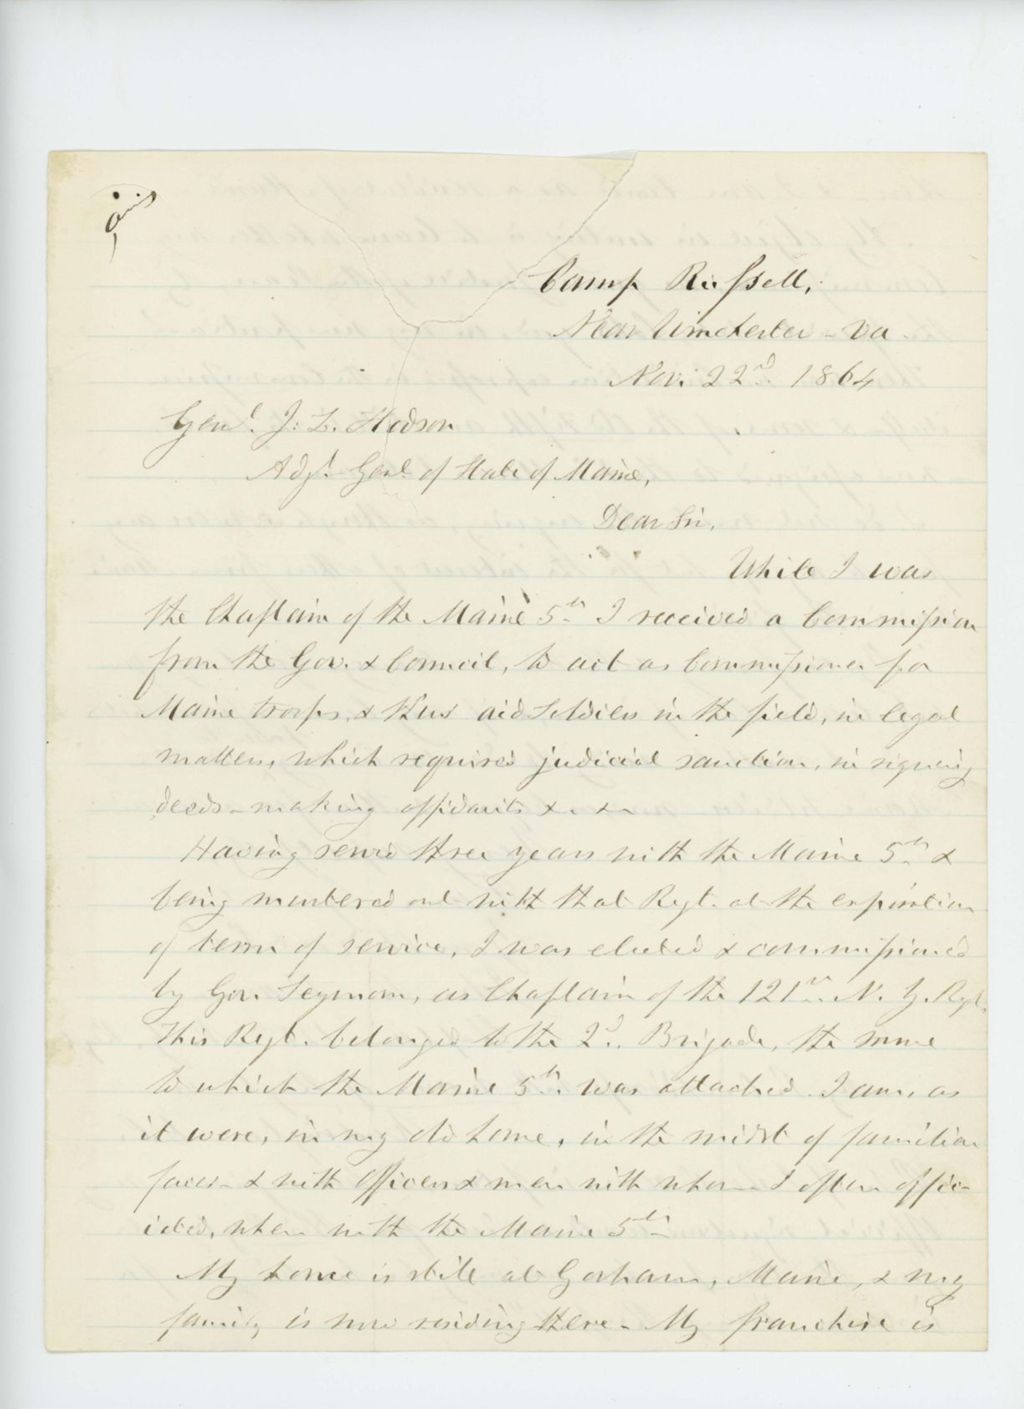 Camp Russell,
Near Winchester - Va.
Nov. 22d. 1864
Genl. J. L. Hodson
Adjt. Genl. of State of Maine,
Dear Sir,
While I was
the Chaplain of the Maine 5th. I received a Commission
from the Gov. & Council, to act as Commissioner for
Maine troops, & thus aid Soldiers in the field, in legal
matters, which required judicial sanction, in signing
deeds - making affidavits &c. &c
Having served three years with the Maine 5th. &
being mustered out with that Regt. at the expiration
of term of service, I was elected & commissioned
by Gov. Seymour, as Chaplain of the 121st. N. Y. Regt.
This Regt. belonged to the 2d. Brigade, the same
to which the Maine 5th. was attached. I am, as
it were, in my old home, in the midst of familiar
faces - & with officers & men with whom I often offic-
iated, when with the Maine 5th.
My home is still at Gorham, Maine, & my
family is now residing there - My franchise is